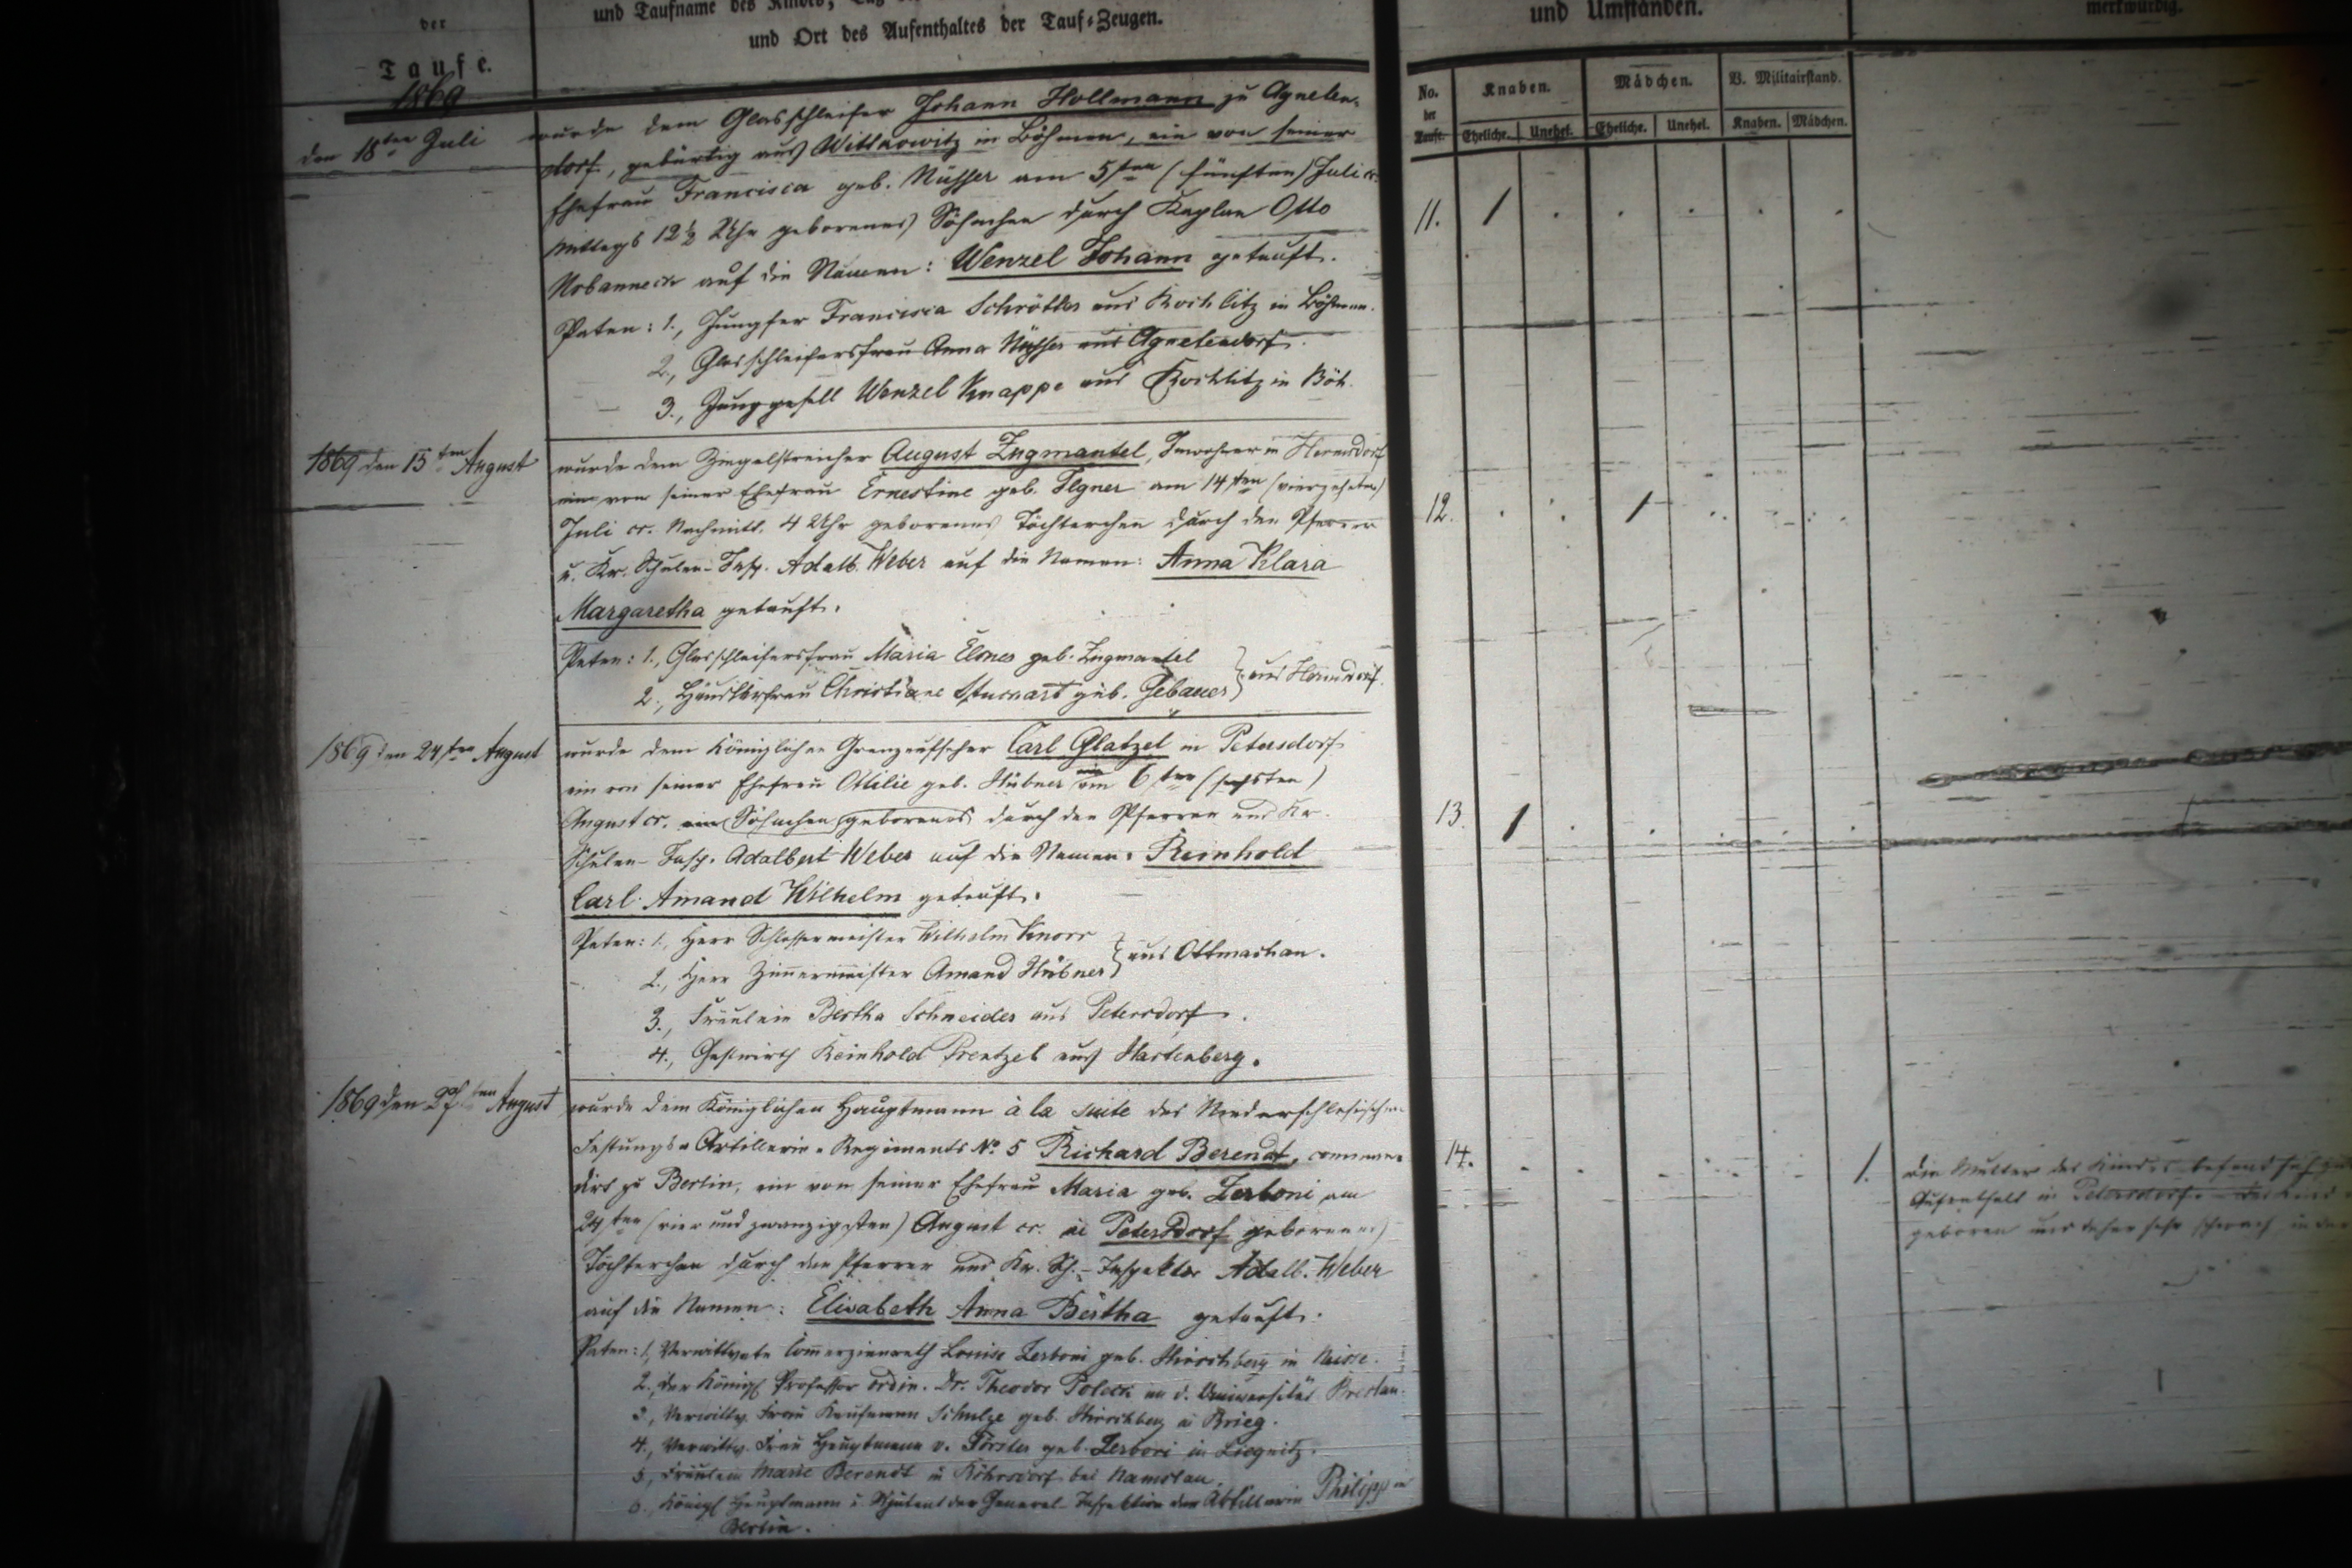 der
Taufe.
und Taufname des Kindes,
und Ort des Aufenthaltes der Tauf-Zeugen.
und Umständen.
merkwürdig.
No. der Taufe.
Knaben.
Mädchen.
B. Militairstand.
Eheliche. Unehel. Eheliche. Unehel. Knaben. Mädchen.
1869
den 18ten Juli
wurde dem Glasschleifer Johann Hollmann zu Agneten-
dorf, gebürtig aus Witkowitz in Böhmen, ein von seiner
Ehefrau Francisca geb. Nüsser am 5ten (fünften) Juli cr.
Mittags 12½ Uhr geborenes Söhnchen durch Kaplan Otto
auf die Namen: Wenzel Johann getauft.
Paten: 1., Jungfer Francisca Schrötter aus Rochlitz in Böhmen.
2., Glasschleifersfrau Anna Nüsser aus Agnetendorf.
3., Junggesell Wenzel Knappe aus Rochlitz in Böh.
11. 1
1869 den 15ten August
wurde dem Ziegelstreicher August Zugmantel, Inwohner in Hermsdorf
ein von seiner Ehefrau Ernestine geb. Ilgner am 14ten (vierzehnten)
Juli cr. Nachmitt. 4 Uhr geborenes Töchterchen durch den Pfarrer
u. Kr. Schulen-Insp. Adalb. Weber auf die Namen: Anna Klara
Margaretha getauft.
Paten: 1., Glasschleifersfrau Maria geb. Zugmantel
2., Häuslersfrau Christiane geb. Gebauer } aus Hermsdorf.
12. 1
1869 den 24ten August
wurde dem Königlichen Grenzaufseher Carl Glatzel in Petersdorf
ein von seiner Ehefrau Ottilie geb. Hübner am 6ten (sechsten)
August cr. ein Söhnchen geborenes durch den Pfarrer und Kr.
Schulen-Insp. Adalbert Weber auf die Namen: Reinhold
Carl Amand Wilhelm getauft.
Paten: 1., Herr Schlossermeister Wilhelm Knorr
2., Herr Zimmermeister Amand Hübner } aus Ottmachau.
3., Fräulein Bertha Schneider aus Petersdorf.
4., Gastwirth Reinhold Prentzel aus Hartenberg.
13. 1
1869 den 29ten August
wurde dem Königlichen Hauptmann à la suite des Niederschlesischen
Festungs-Artillerie-Regiments No. 5 Richard Berendt, comman-
dirt zu Berlin, ein von seiner Ehefrau Maria geb. Zerboni am
24ten (vier und zwanzigsten) August cr. in Petersdorf geborenes
Töchterchen durch den Pfarrer und Kr. Sch.-Inspektor Adalb. Weber
auf die Namen: Elisabeth Anna Bertha getauft.
Paten: 1., Verwittwete Commerzienrath Louise Zerboni geb. Hirschberg in Neisse.
2., der Königl. Professor ordin. Dr. Theodor Poleck an d. Universität Breslau.
3., Verwittw. Frau Kaufmann Schulze geb. Hirschberg in Brieg.
4., Verwittw. Frau Hauptmann v. Förster geb. Zerboni in Liegnitz.
5., Fräulein Marie Berendt in bei Namslau.
6., Königl. Hauptmann u. Adjutant der General-Inspektion der Artillerie Philipp in
Berlin.
14. 1.
die Mutter des Kindes befand sich
Aufenthalt in Petersdorf. das Kind
geboren und daher sehr schwach